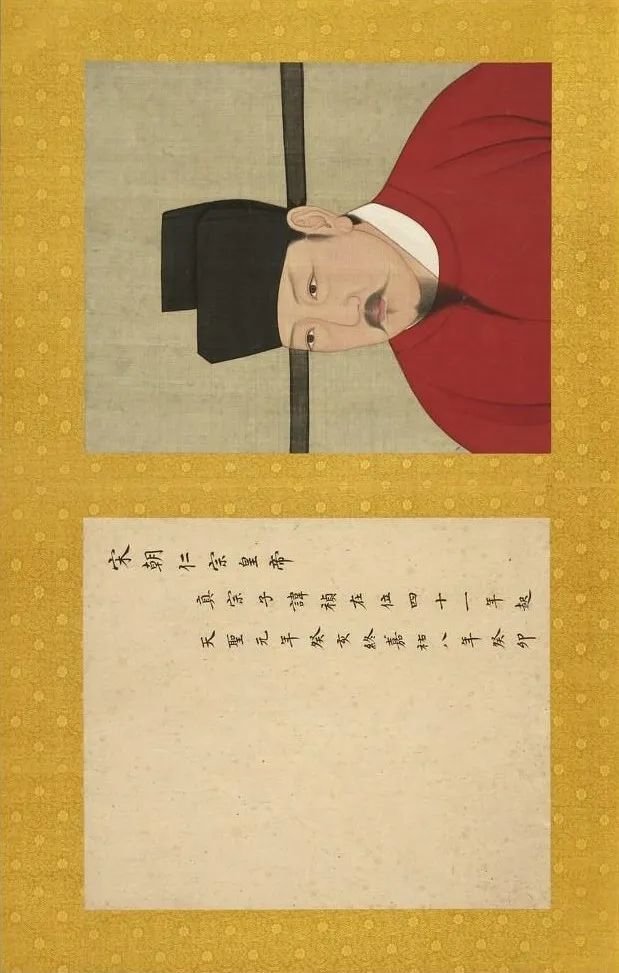 宋朝仁宗皇帝
真宗子諱禎在位四十一年起
天聖元年癸亥終嘉祐八年癸卯